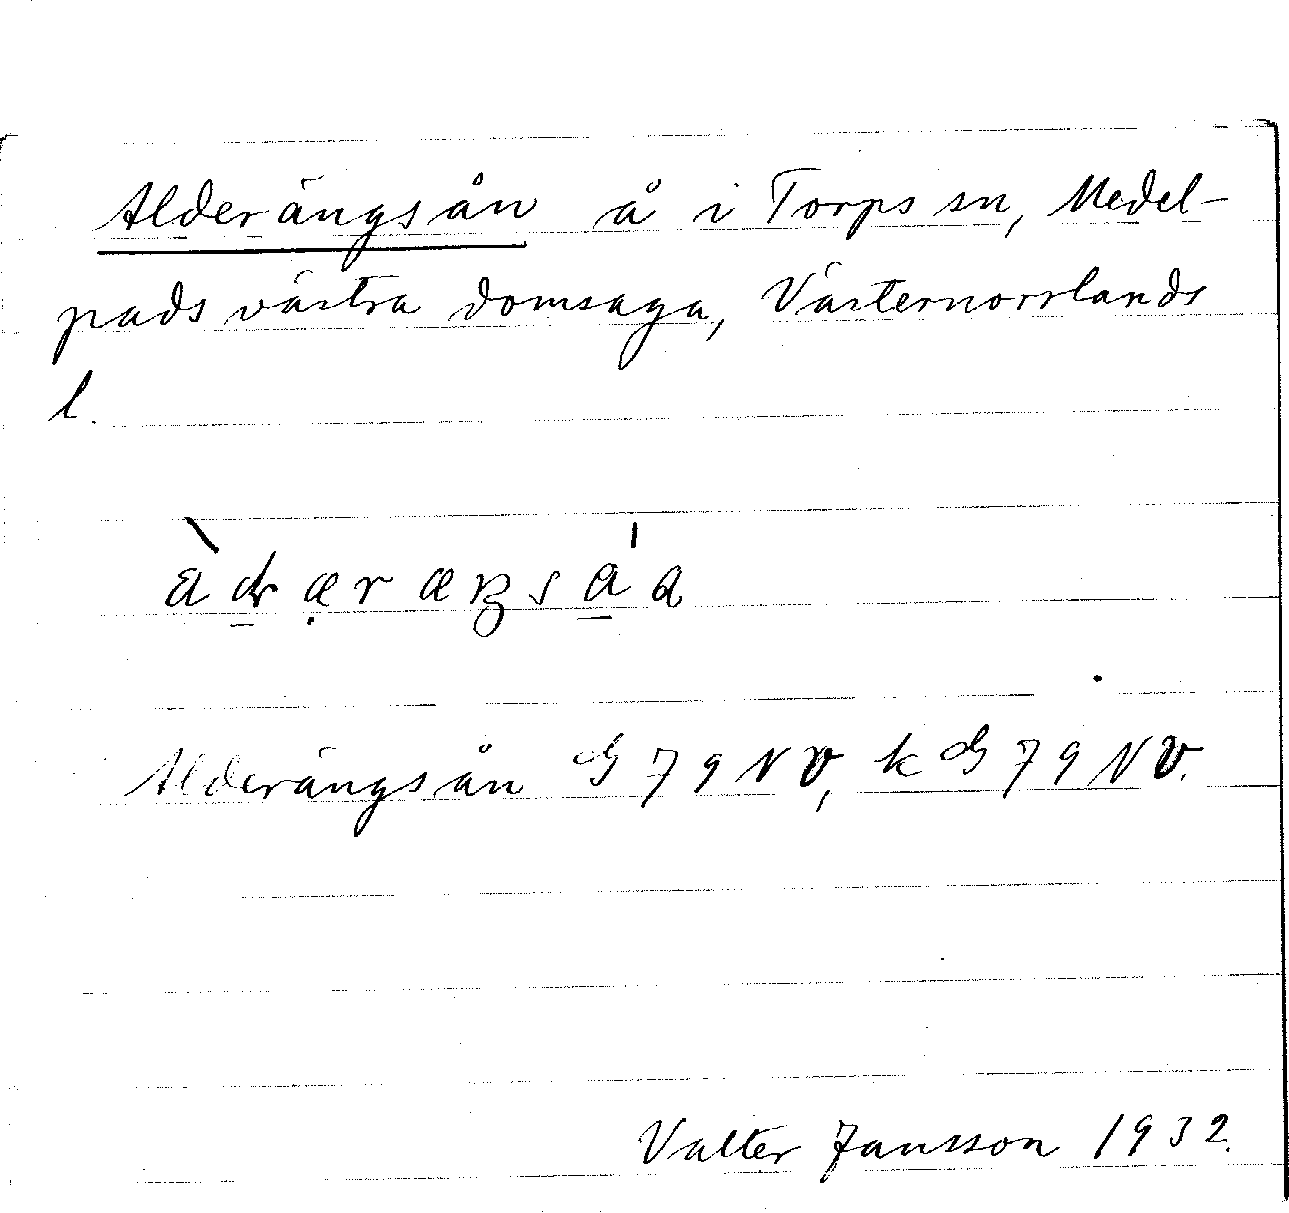 Alderängsån å i Torps sn, Medel-
pads västra domsaga, Västernorrlands
l.
Alderängsån G 79 NV, k G 79 NV.
Valter Jansson 1932.